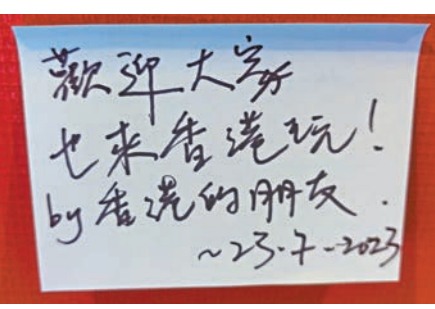 歡迎大家
也來香港玩！
by 香港的朋友.
~23.7-2023